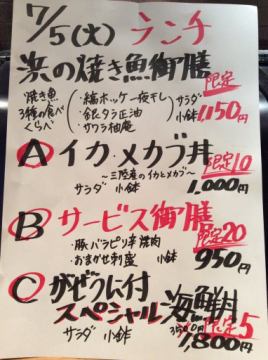 7/5(火) ランチ
浜の焼き魚御膳
焼き魚 3種の食べくらべ
・縞ホッケ一夜干し
・銀タラ正油
・サワラ柚庵
サラダ 小鉢
限定
1,150円
Ⓐ イカ・メカブ丼
～三陸産のイカとメカブ～
限定10
サラダ 小鉢 1,000円
Ⓑ サービス御膳
限定20
・豚バラピリ辛焼肉
・おまかせ刺盛 小鉢 950円
Ⓒ がぜうに付
スペシャル海鮮丼
限定5
サラダ 小鉢 1,800円